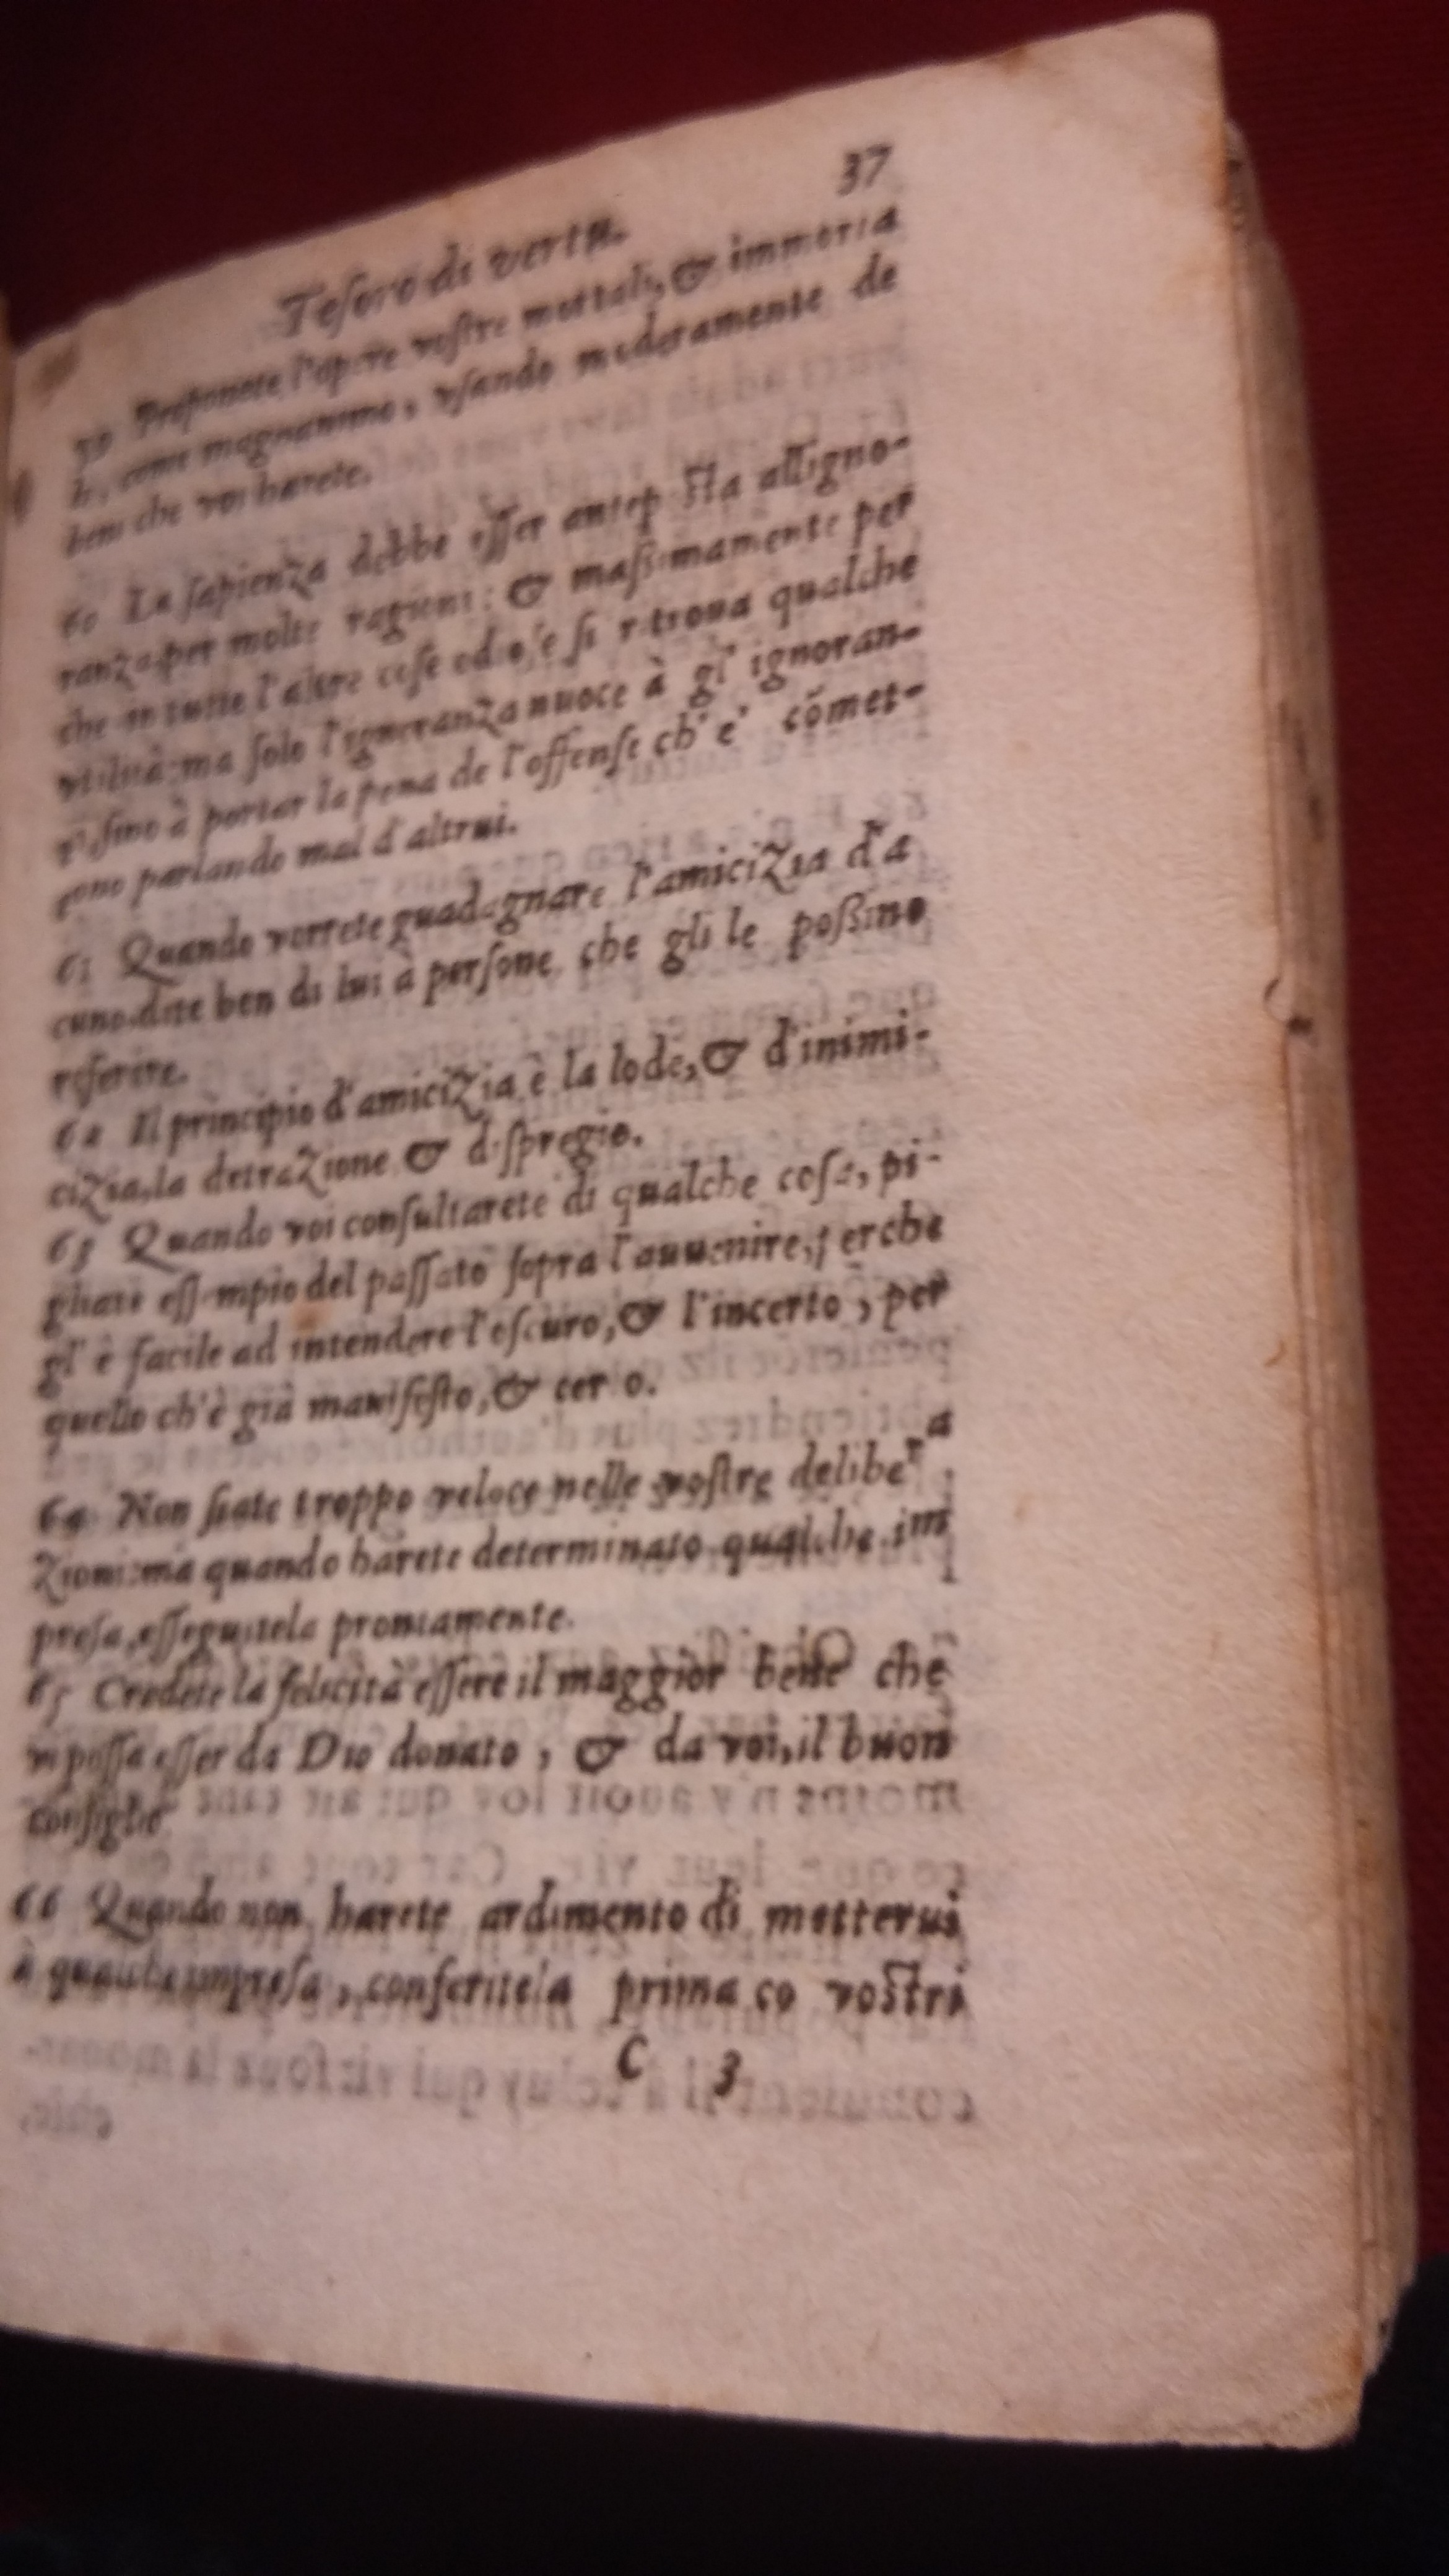 37
Teſoro di vertu.
59 Proponete l'opere voſtre mortali, & immorta
li, come magnanimo, vſando moderamente de
beni che voi harete.
60 La ſapienza debbe eſſer antep ſta all'igno-
ranza per molte ragioni: & maſſimamente per
che in tutte l'altre coſe odioſe ſi ritroua qualche
vtilità: ma ſolo l'ignoranza nuoce à gl' ignoran-
ti, ſino à portar la pena de l'offenſe ch' e' cõmet-
tono parlando mal d'altrui.
61 Quando vorrete guadagnare l'amicizia d'a
cuno, dite ben di lui à perſone, che gli le poßino
referire.
62 Il principio d'amicizia è la lode, & d'inimi-
cizia, la detrazione & diſpregio.
63 Quando voi conſultarete di qualche coſa, pi-
gliate eſſ mpio del paſſato ſopra l'auuenire, perche
gl' è facile ad intendere l'oſcuro, & l'incerto, per
quello ch'è già manifeſto, & cer o.
64 Non ſiate troppo veloce nelle voſtre delibera
zioni: ma quando harete determinato qualche im
preſa, eſſeguitela prontamente.
65 Credete la felicità eſſere il maggior bene che
vi poſſa eſſer da Dio donato, & da voi, il buon
conſiglio
66 Quando non harete ardimento di metterui
à qualche impreſa, conferitela prima co voſtri
C 3